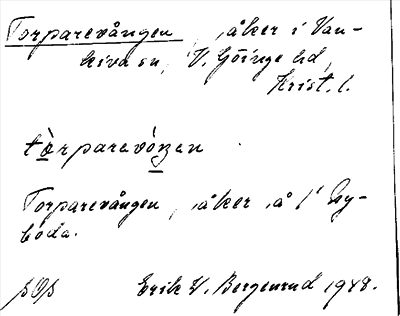 Torparevången, åker i Van-
kiva sn, V. Göinge hd,
Krist. l.
tòrparevóŋen
Torparevången, åker å 1/ Ny-
boda.
Erik W. Bergenrud 1948.